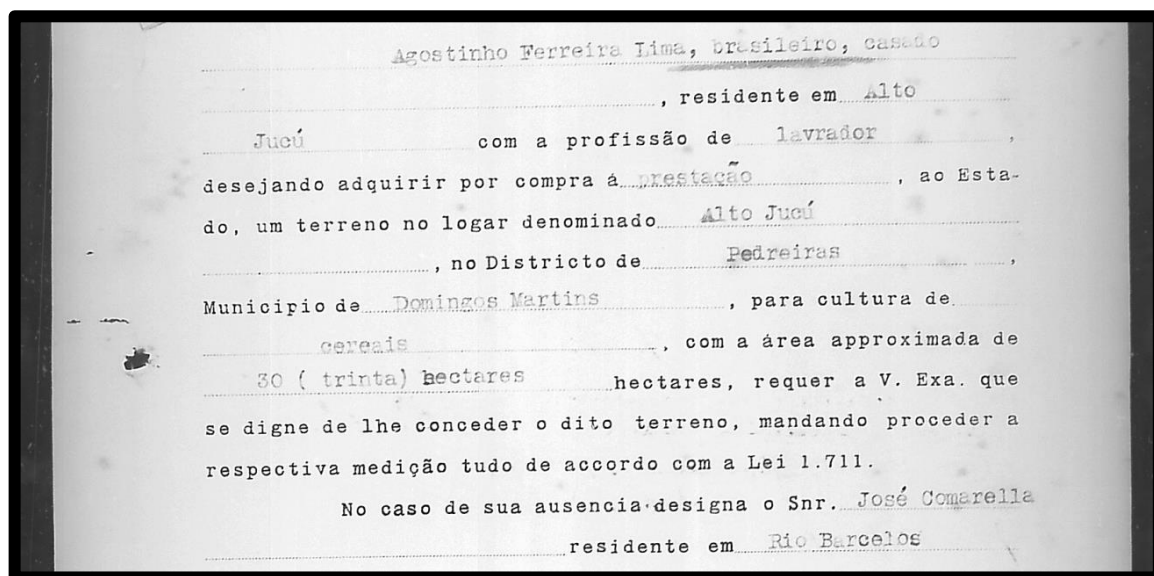 Agostinho Ferreira Lima, brasileiro, casado
, residente em Alto
Jucú com a profissão de lavrador ,
desejando adquirir por compra á prestação , ao Esta-
do, um terreno no logar denominado Alto Jucú
, no Districto de Pedreiras ,
Municipio de Domingos Martins , para cultura de
cereais , com a área approximada de
30 ( trinta) hectares hectares, requer a V. Exa. que
se digne de lhe conceder o dito terreno, mandando proceder a
respectiva medição tudo de accordo com a Lei 1.711.
No caso de sua ausencia designa o Snr. José Comarella
residente em Rio Barcelos